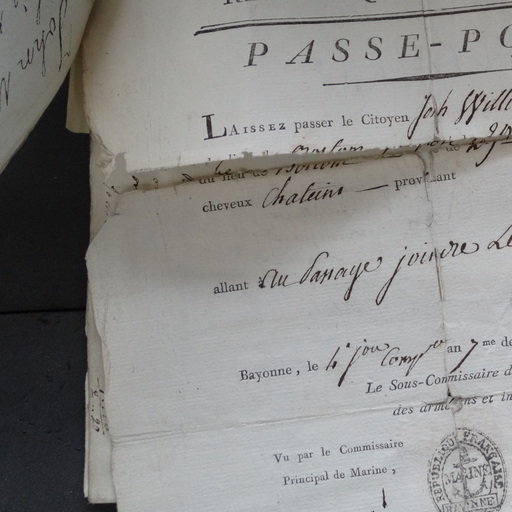 PASSE-PO
LAISSEZ passer le Citoyen Josh Willi
du lieu de Boston
cheveux Chateins — provenant
allant au Passage joindre Le
Bayonne, le 4e jour Compre an 7me de
Le Sous-Commissaire d
des armemens et in
Vu par le Commissaire
Principal de Marine,
REPUBLIQUE FRANÇAISE
MARINE
BAYONNE